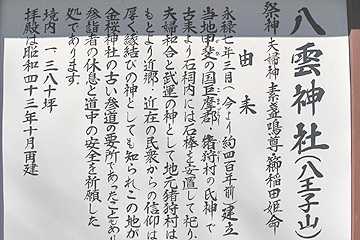 八雲神社(八王子山)
祭神 夫婦神 素盞鳴尊 櫛稲田姫命
由来
永禄七年三月(今より約四百年前)建立
当地甲斐の国巨摩郡・猪狩村の氏神で
古来より石祠内には石棒を安置して祀り、
夫婦和合と武運の神として地元猪狩村は
もとより近郷・近在の民衆からの信仰は
厚く縁結びの神としても知られ、この地が
金桜神社の古い参道の要所であったことあり
参詣者の休息と道中の安全を祈願した
処であります。
境内 一、三八〇坪
拝殿は昭和四十三年十月再建